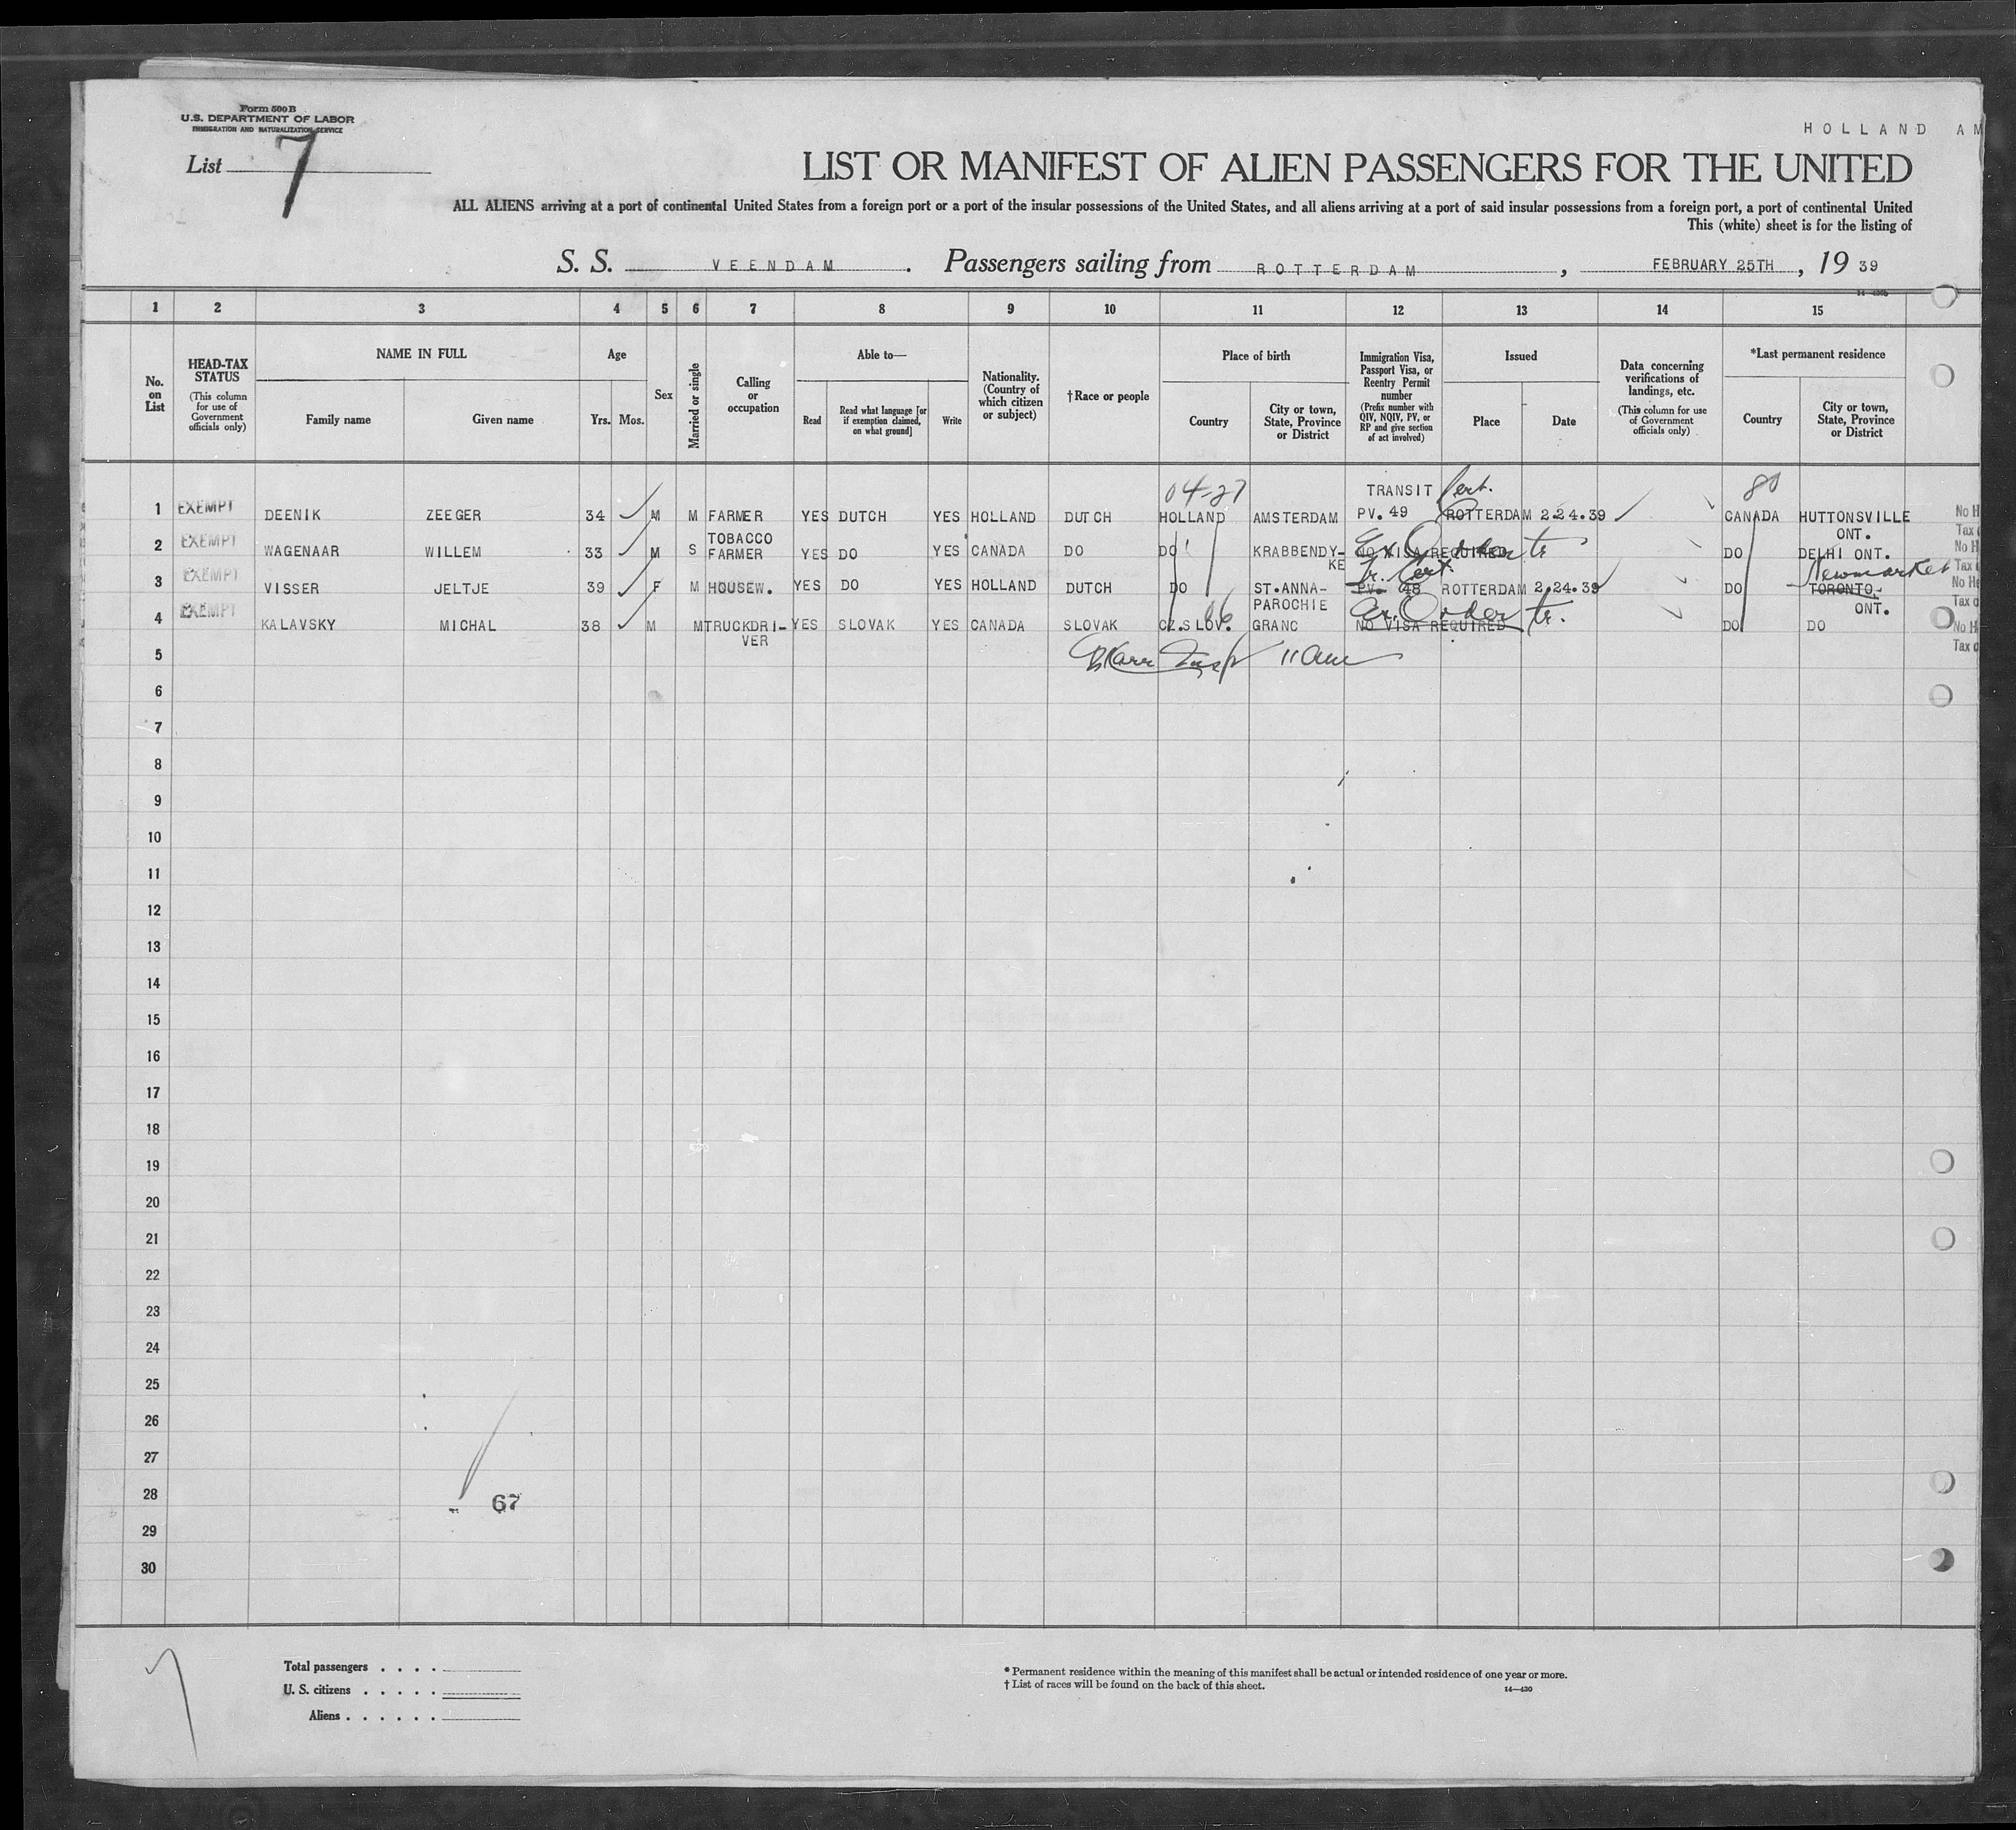 Form 500 B
U.S. DEPARTMENT OF LABOR
IMMIGRATION AND NATURALIZATION SERVICE
HOLLAND AM
List 7
LIST OR MANIFEST OF ALIEN PASSENGERS FOR THE UNITED
ALL ALIENS arriving at a port of continental United States from a foreign port or a port of the insular possessions of the United States, and all aliens arriving at a port of said insular possessions from a foreign port, a port of continental United
This (white) sheet is for the listing of
S. S. VEENDAM . Passengers sailing from ROTTERDAM , FEBRUARY 25TH , 19 39
1 2 3 4 5 6 7 8 9 10 11 12 13 14 15
No. on List
HEAD-TAX STATUS
(This column for use of Government officials only)
NAME IN FULL
Family name Given name
Age
Yrs. Mos.
Sex
Married or single
Calling or occupation
Able to—
Read
Read what language [or if exemption claimed, on what ground]
Write
Nationality. (Country of which citizen or subject)
†Race or people
Place of birth
Country
City or town, State, Province or District
Immigration Visa, Passport Visa, or Reentry Permit number
(Prefix number with QIV, NQIV, PV, or RP and give section of act involved)
Issued
Place Date
Data concerning verifications of landings, etc.
(This column for use of Government officials only)
*Last permanent residence
Country
City or town, State, Province or District
04-27 TRANSIT Cert. 80
1 EXEMPT DEENIK ZEEGER 34 M M FARMER YES DUTCH YES HOLLAND DUTCH HOLLAND AMSTERDAM PV. 49 ROTTERDAM 2.24.39 CANADA HUTTONSVILLE No H
TOBACCO ONT. Tax
2 EXEMPT WAGENAAR WILLEM 33 M S FARMER YES DO YES CANADA DO DO KRABBENDY- NO VISA REQUIRED Ex Order tr DO DELHI ONT. No H
KE Tr. Cert. Newmarket Tax
3 EXEMPT VISSER JELTJE 39 F M HOUSEW. YES DO YES HOLLAND DUTCH DO ST.ANNA- PV. 48 ROTTERDAM 2.24.39 DO TORONTO- No He
06 PAROCHIE ONT. Tax
4 EXEMPT KALAVSKY MICHAL 38 M M TRUCKDRI- YES SLOVAK YES CANADA SLOVAK CZ.SLOV. GRANC NO VISA REQUIRED Order tr. DO DO No H
VER Tax
5 Insp 11 am
6
7
8
9
10
11
12
13
14
15
16
17
18
19
20
21
22
23
24
25
26
27
28 67
29
30
Total passengers . . . .
U. S. citizens . . . . .
Aliens . . . . . .
* Permanent residence within the meaning of this manifest shall be actual or intended residence of one year or more.
† List of races will be found on the back of this sheet.
14—430